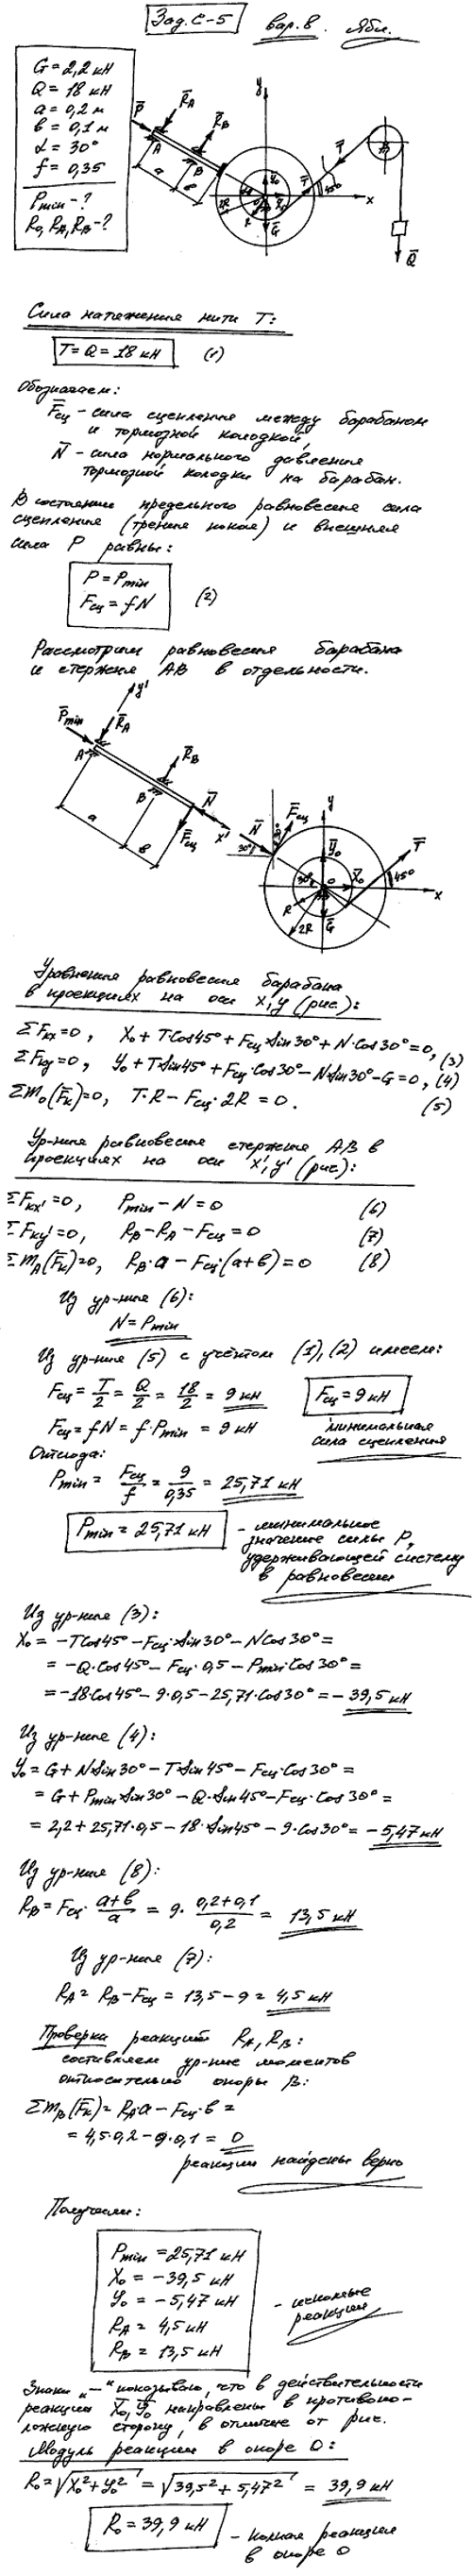 Зад. С-5 вар. 8. Ябл.
G = 2,2 кН
Q = 18 кН
a = 0,2 м
b = 0,1 м
α = 30°
f = 0,35
Pmin - ?
R₀, R_A, R_B - ?
Сила натяжения нити T:
T = Q = 18 кН (1)
Обозначаем:
F̅сц - сила сцепления между барабаном
и тормозной колодкой,
N̅ - сила нормального давления
тормозной колодки на барабан.
В состоянии предельного равновесия сила
сцепления (трения покоя) и внешняя
сила P равны:
P = Pmin
Fсц = fN (2)
Рассмотрим равновесия барабана
и стержня AB в отдельности.
Уравнения равновесия барабана
в проекциях на оси x, y (рис):
ΣFkx = 0, X₀ + T·Cos45° + Fсц·Sin30° + N·Cos30° = 0, (3)
ΣFky = 0, Y₀ + T·Sin45° + Fсц·Cos30° - N·Sin30° - G = 0, (4)
Σm₀(F̅k) = 0, T·R - Fсц·2R = 0. (5)
Ур-ния равновесия стержня AB в
проекциях на оси x', y' (рис):
ΣFkx' = 0, Pmin - N = 0 (6)
ΣFky' = 0, R_B - R_A - Fсц = 0 (7)
Σm_A(F̅k) = 0, R_B·a - Fсц·(a+b) = 0 (8)
Из ур-ния (6):
N = Pmin
Из ур-ния (5) с учётом (1), (2) имеем:
Fсц = T/2 = Q/2 = 18/2 = 9 кН Fсц = 9 кН
Fсц = fN = f·Pmin = 9 кН минимальная
сила сцепления
Отсюда:
Pmin = Fсц/f = 9/0,35 = 25,71 кН
Pmin = 25,71 кН - минимальное
значение силы P,
удерживающей систему
в равновесии
Из ур-ния (3):
X₀ = -T·Cos45° - Fсц·Sin30° - N·Cos30° =
= -Q·Cos45° - Fсц·0,5 - Pmin·Cos30° =
= -18·Cos45° - 9·0,5 - 25,71·Cos30° = -39,5 кН
Из ур-ния (4):
Y₀ = G + N·Sin30° - T·Sin45° - Fсц·Cos30° =
= G + Pmin·Sin30° - Q·Sin45° - Fсц·Cos30° =
= 2,2 + 25,71·0,5 - 18·Sin45° - 9·Cos30° = -5,47 кН
Из ур-ния (8):
R_B = Fсц·(a+b)/a = 9·(0,2+0,1)/0,2 = 13,5 кН
Из ур-ния (7):
R_A = R_B - Fсц = 13,5 - 9 = 4,5 кН
Проверка реакций R_A, R_B:
составляем ур-ние моментов
относительно опоры B:
Σm_B(F̅k) = R_A·a - Fсц·b =
= 4,5·0,2 - 9·0,1 = 0
реакции найдены верно
Получили:
Pmin = 25,71 кН
X₀ = -39,5 кН
Y₀ = -5,47 кН
R_A = 4,5 кН
R_B = 13,5 кН
- искомые
реакции
Знаки „-“ показываю, что в действительности
реакции X̅₀, Y̅₀ направлены в противопо-
ложную сторону, в отличие от рис.
Модуль реакции в опоре O:
R₀ = √(X₀² + Y₀²) = √(39,5² + 5,47²) = 39,9 кН
R₀ = 39,9 кН - полная реакция
в опоре O